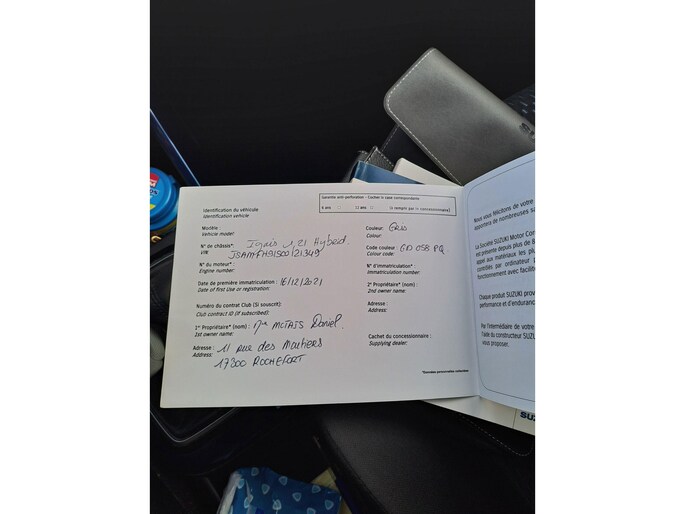 Garantie anti-perforation - Cocher la case correspondante
Identification du véhicule
Identification vehicle
6 ans
ans
(à remplir par le concessionnaire)
Modèle :
Vehicle model:
Ignis 21 Hybrid
Couleur : Gris
Colour:
N° de châssis*:
VIN
JSAMFH91S00121349
Code couleur : GD 05B PQ
Colour code:
N° du moteur* :
Engine number:
N° d'immatriculation* :
Immatriculation number:
Date de première immatriculation : 16/12/2021
Date of First Use or registration:
2° Propriétaire* (nom) :
2nd owner name:
Numéro du contrat Club (Si souscrit):
Club contract ID (if subscribed):
Adresse :
Address:
1° Propriétaire* (nom) : Daniel
1st owner name:
Cachet du concessionnaire :
Supplying dealer:
Adresse : 11 rue des
Address:
17300 ROCHEFORT
*Données personnelles collectées
Nous vous félicitons de votre
apportera de nombreuses sa
La Société SUZUKI Motor Cor
est présente depuis plus de 8
appel aux matériaux les plu
contrôlés par ordinateur p
fonctionnement avec facilité
Chaque produit SUZUKI prov
performance et d'enduranc
Par l'intermédiaire de votre
l'aide du constructeur SUZUK
vous proposer.
SUZ